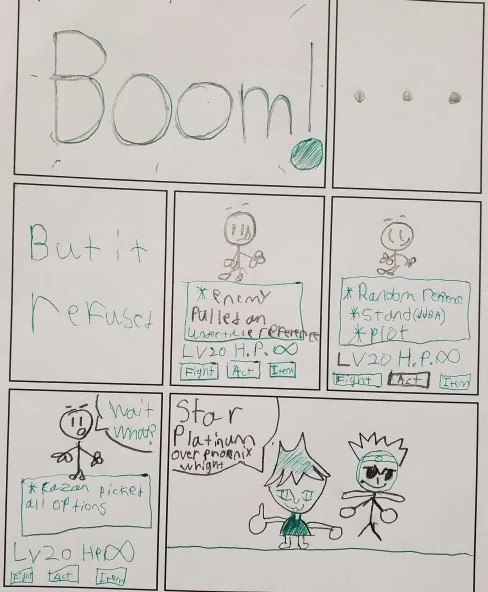 Boom!
...
But it
refused
* enemy
Pulled an
undertale reference
LV20 H.P.∞
Fight Act Item
* Random
* Stand (JJBA)
* plot
LV20 H.P.∞
Fight Act Item
Wait
what?
* Razan picked
all options
LV20 HP∞
Fight Act Item
Star
Platinum
over pheonix
whight